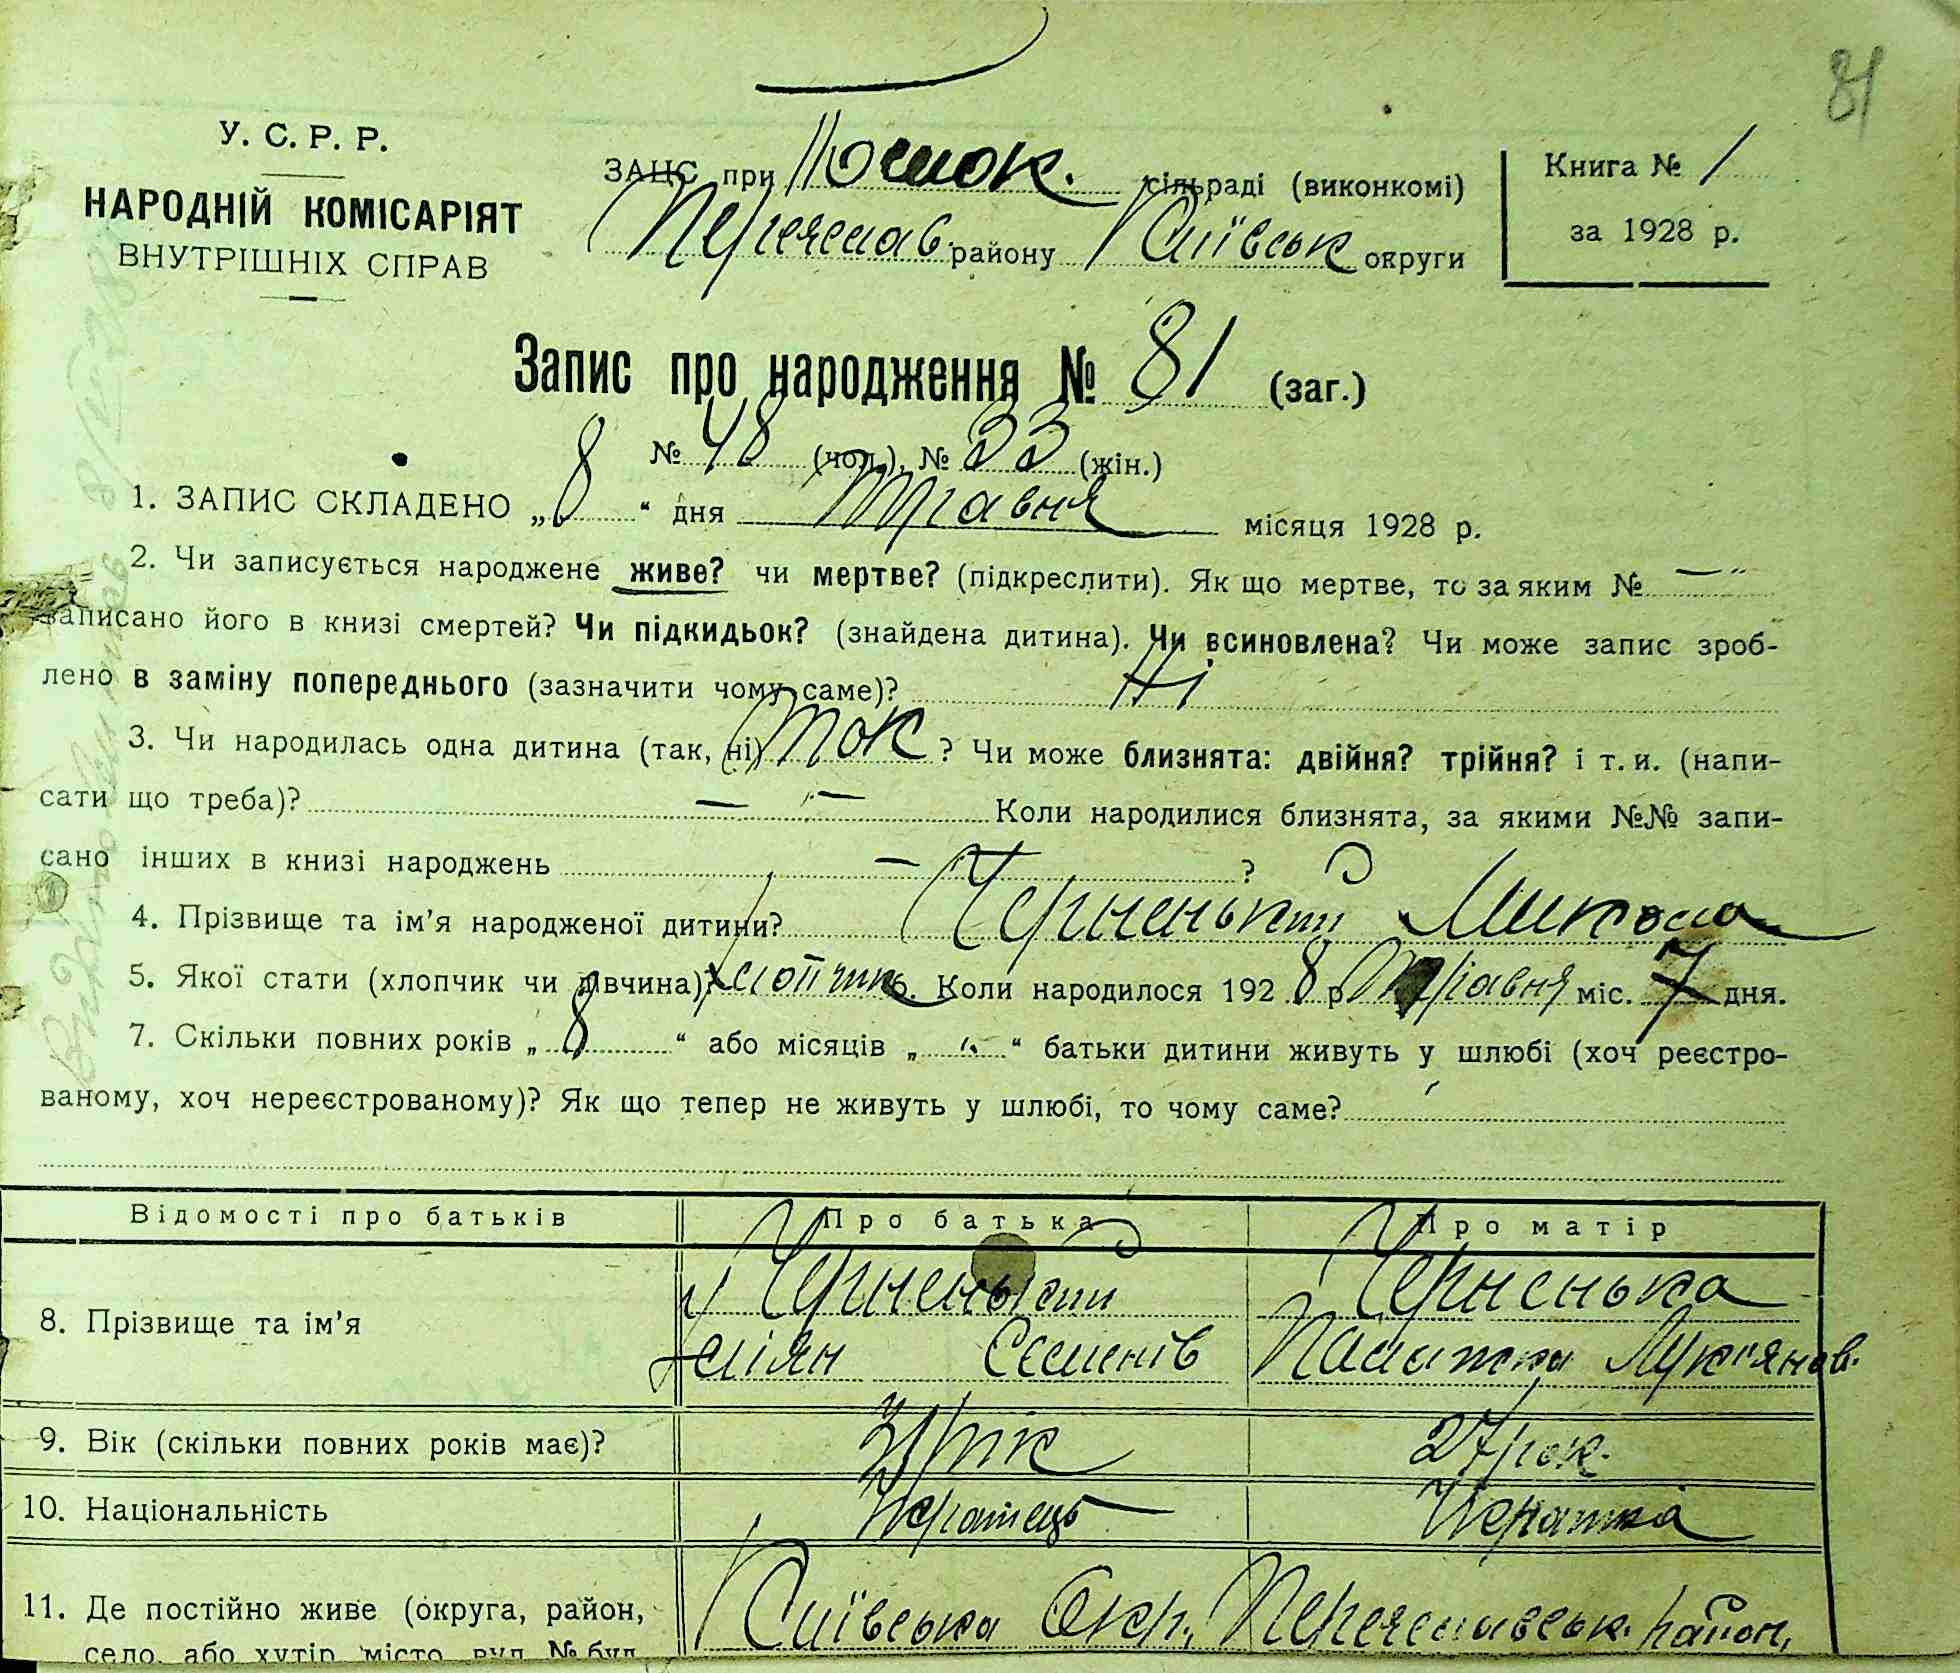 81
У. С. Р. Р.
НАРОДНІЙ КОМІСАРІЯТ
ВНУТРІШНІХ СПРАВ
ЗАЦС при сільраді (виконкомі)
Переяслав. району Київськ округи
Книга № 1
за 1928 р.
Запис про народження № 81 (заг.)
№ 48 (чол.), № 33 (жін.)
1. ЗАПИС СКЛАДЕНО „ 8 “ дня Травня місяця 1928 р.
2. Чи записується народжене живе? чи мертве? (підкреслити). Як що мертве, то за яким № —
записано його в книзі смертей? Чи підкидьок? (знайдена дитина). Чи всиновлена? Чи може запис зроб-
лено в заміну попереднього (зазначити чому саме)? Ні
3. Чи народилась одна дитина (так, ні) так ? Чи може близнята: двійня? трійня? і т. и. (напи-
сати що треба)? — — Коли народилися близнята, за якими №№ запи-
сано інших в книзі народжень — ?
4. Прізвище та ім’я народженої дитини? Черненький Микола
5. Якої стати (хлопчик чи дівчина)? хлопчик. Коли народилося 192 8 р. Травня міс. 7 дня.
7. Скільки повних років „ 8 “ або місяців „ “ батьки дитини живуть у шлюбі (хоч реєстро-
ваному, хоч нереєстрованому)? Як що тепер не живуть у шлюбі, то чому саме?
Відомості про батьків Про батька Про матір
8. Прізвище та ім’я Черненький Черненька
Семенів Палажка Лук"янов.
9. Вік (скільки повних років має)? 31 рік 27 рок.
10. Національність Українець Українка
11. Де постійно живе (округа, район, Київська Окр. Переяславськ. район,
село, або хутір, місто, вул. № буд.